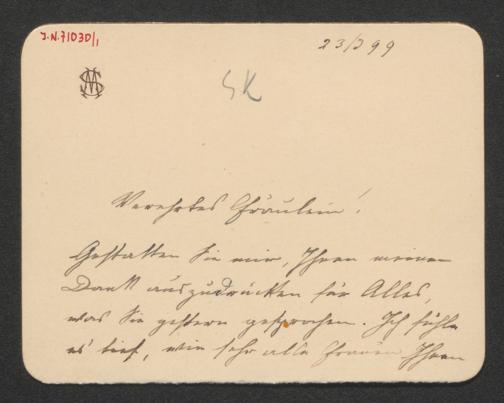 J.N. 71030/1
23/3 99
SK
Verehrtes Fräulein!
Gestatten Sie mir, Ihnen meinen
Dank auszudrücken für Alles,
was Sie gestern gesprochen. Ich fühle
es tief, wie sehr alle Frauen Ihnen